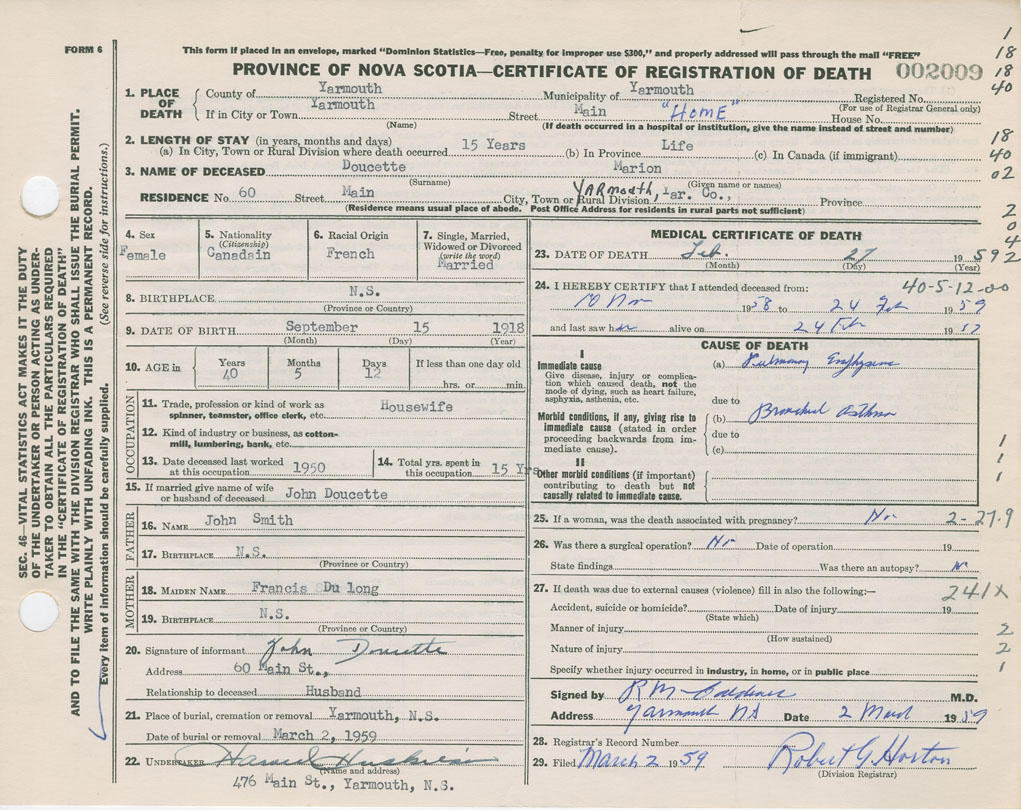 FORM 6
This form if placed in an envelope, marked "Dominion Statistics—Free, penalty for improper use $300," and properly addressed will pass through the mail "FREE"
PROVINCE OF NOVA SCOTIA—CERTIFICATE OF REGISTRATION OF DEATH 002009
1. PLACE OF DEATH
County of Yarmouth Municipality of Yarmouth Registered No.
(For use of Registrar General only)
If in City or Town Yarmouth Street Main "HOME" House No.
(Name) (If death occurred in a hospital or institution, give the name instead of street and number)
2. LENGTH OF STAY (in years, months and days)
(a) In City, Town or Rural Division where death occurred 15 Years (b) In Province Life (c) In Canada (if immigrant)
3. NAME OF DECEASED Doucette Marion
(Surname) (Given name or names)
RESIDENCE No. 60 Street Main City, Town or Rural Division YARMOUTH, Yar. Co., Province
(Residence means usual place of abode. Post Office Address for residents in rural parts not sufficient)
4. Sex
Female
5. Nationality
(Citizenship)
Canadain
6. Racial Origin
French
7. Single, Married, Widowed or Divorced
(write the word)
Married
8. BIRTHPLACE N.S.
(Province or Country)
9. DATE OF BIRTH September 15 1918
(Month) (Day) (Year)
10. AGE in Years 40 Months 5 Days 12 If less than one day old
hrs. or min.
OCCUPATION
11. Trade, profession or kind of work as spinner, teamster, office clerk, etc. Housewife
12. Kind of industry or business, as cotton-mill, lumbering, bank, etc.
13. Date deceased last worked at this occupation 1950
14. Total yrs. spent in this occupation 15 Yrs
15. If married give name of wife or husband of deceased John Doucette
FATHER
16. NAME John Smith
17. BIRTHPLACE N.S.
(Province or Country)
MOTHER
18. MAIDEN NAME Francis Du long
19. BIRTHPLACE N.S.
(Province or Country)
20. Signature of informant John Doucette
Address 60 Main St.,
Relationship to deceased Husband
21. Place of burial, cremation or removal Yarmouth, N.S.
Date of burial or removal March 2, 1959
22. UNDERTAKER
(Name and address)
476 Main St., Yarmouth, N.S.
MEDICAL CERTIFICATE OF DEATH
23. DATE OF DEATH Feb. 27 1959
(Month) (Day) (Year)
24. I HEREBY CERTIFY that I attended deceased from: 40-5-12-00
10 Nov 1958 to 24 Feb 1959
and last saw her alive on 24 Feb 1959
CAUSE OF DEATH
I
Immediate cause
Give disease, injury or complication which caused death, not the mode of dying, such as heart failure, asphyxia, asthenia, etc.
(a) Pulmonary Emphysema
due to
Morbid conditions, if any, giving rise to immediate cause (stated in order proceeding backwards from immediate cause).
(b) Bronchial Asthma
due to
(c)
II
Other morbid conditions (if important) contributing to death but not causally related to immediate cause.
25. If a woman, was the death associated with pregnancy? No 2-27.9
26. Was there a surgical operation? No Date of operation 19
State findings Was there an autopsy? No
27. If death was due to external causes (violence) fill in also the following:— 241X
Accident, suicide or homicide? Date of injury 19
(State which)
Manner of injury
(How sustained)
Nature of injury
Specify whether injury occurred in industry, in home, or in public place
Signed by M.D.
Address Yarmouth NS Date 2 March 1959
28. Registrar's Record Number
29. Filed March 2 1959 Robert G. Horton
(Division Registrar)
SEC. 46—VITAL STATISTICS ACT MAKES IT THE DUTY
OF THE UNDERTAKER OR PERSON ACTING AS UNDER-
TAKER TO OBTAIN ALL THE PARTICULARS REQUIRED
IN THE "CERTIFICATE OF REGISTRATION OF DEATH"
AND TO FILE THE SAME WITH THE DIVISION REGISTRAR WHO SHALL ISSUE THE BURIAL PERMIT.
WRITE PLAINLY WITH UNFADING INK. THIS IS A PERMANENT RECORD.
Every item of information should be carefully supplied. (See reverse side for instructions.)
1
18
18
40
18
40
02
2
0
4
2
1
1
1
2
2
1